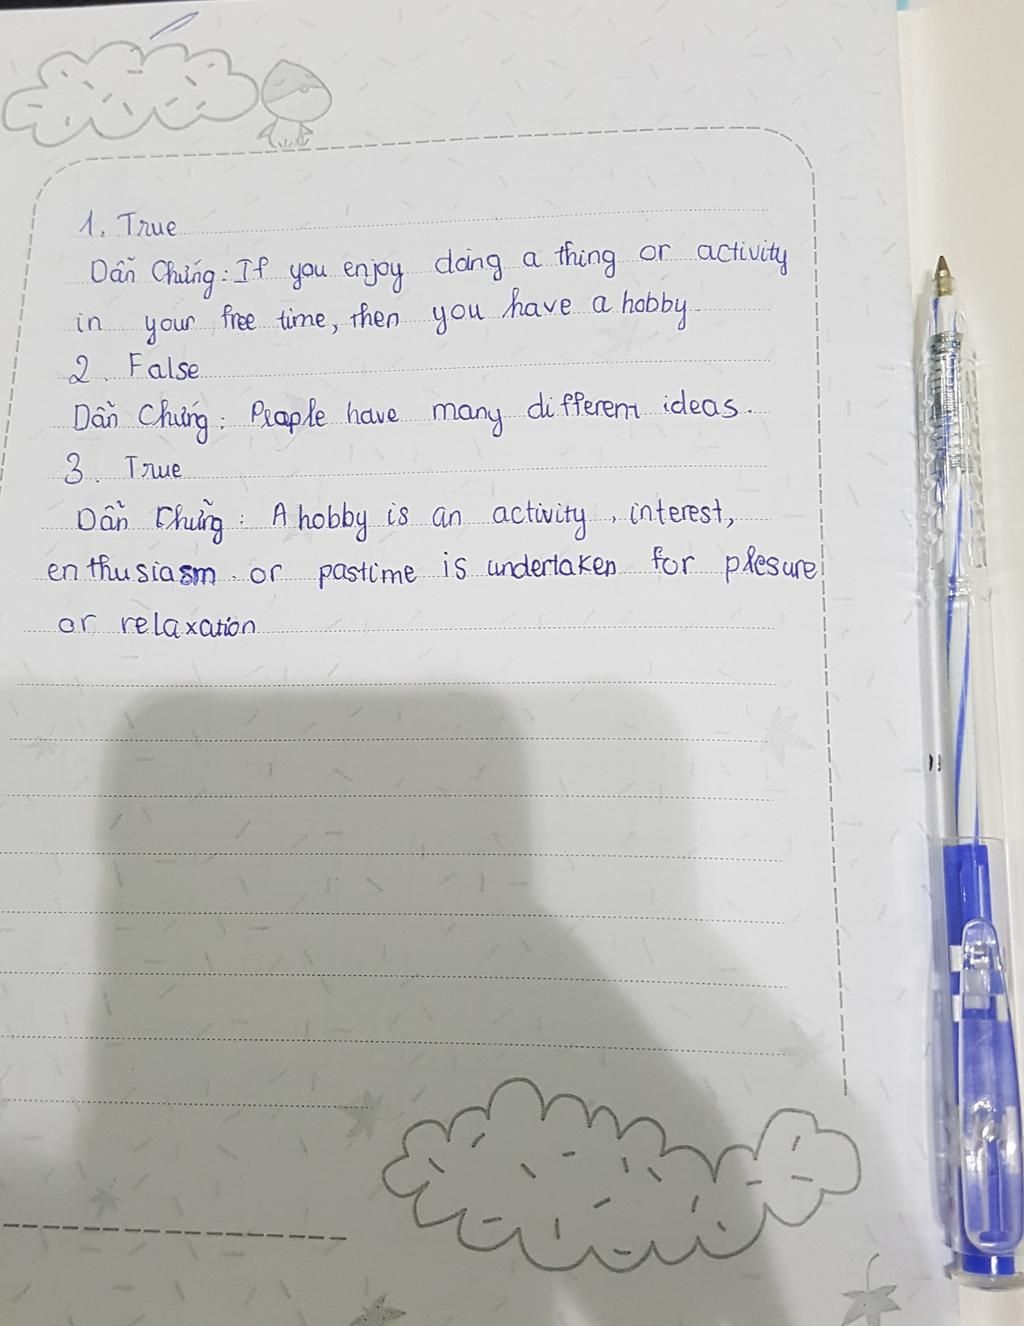 1. True
Dẫn Chứng: If you enjoy doing a thing or activity
in your free time, then you have a hobby
2. False
Dẫn Chứng: People have many different ideas.
3. True
Dẫn Chứng: A hobby is an activity, interest,
enthusiasm or pastime is undertaken for plesure
or relaxation